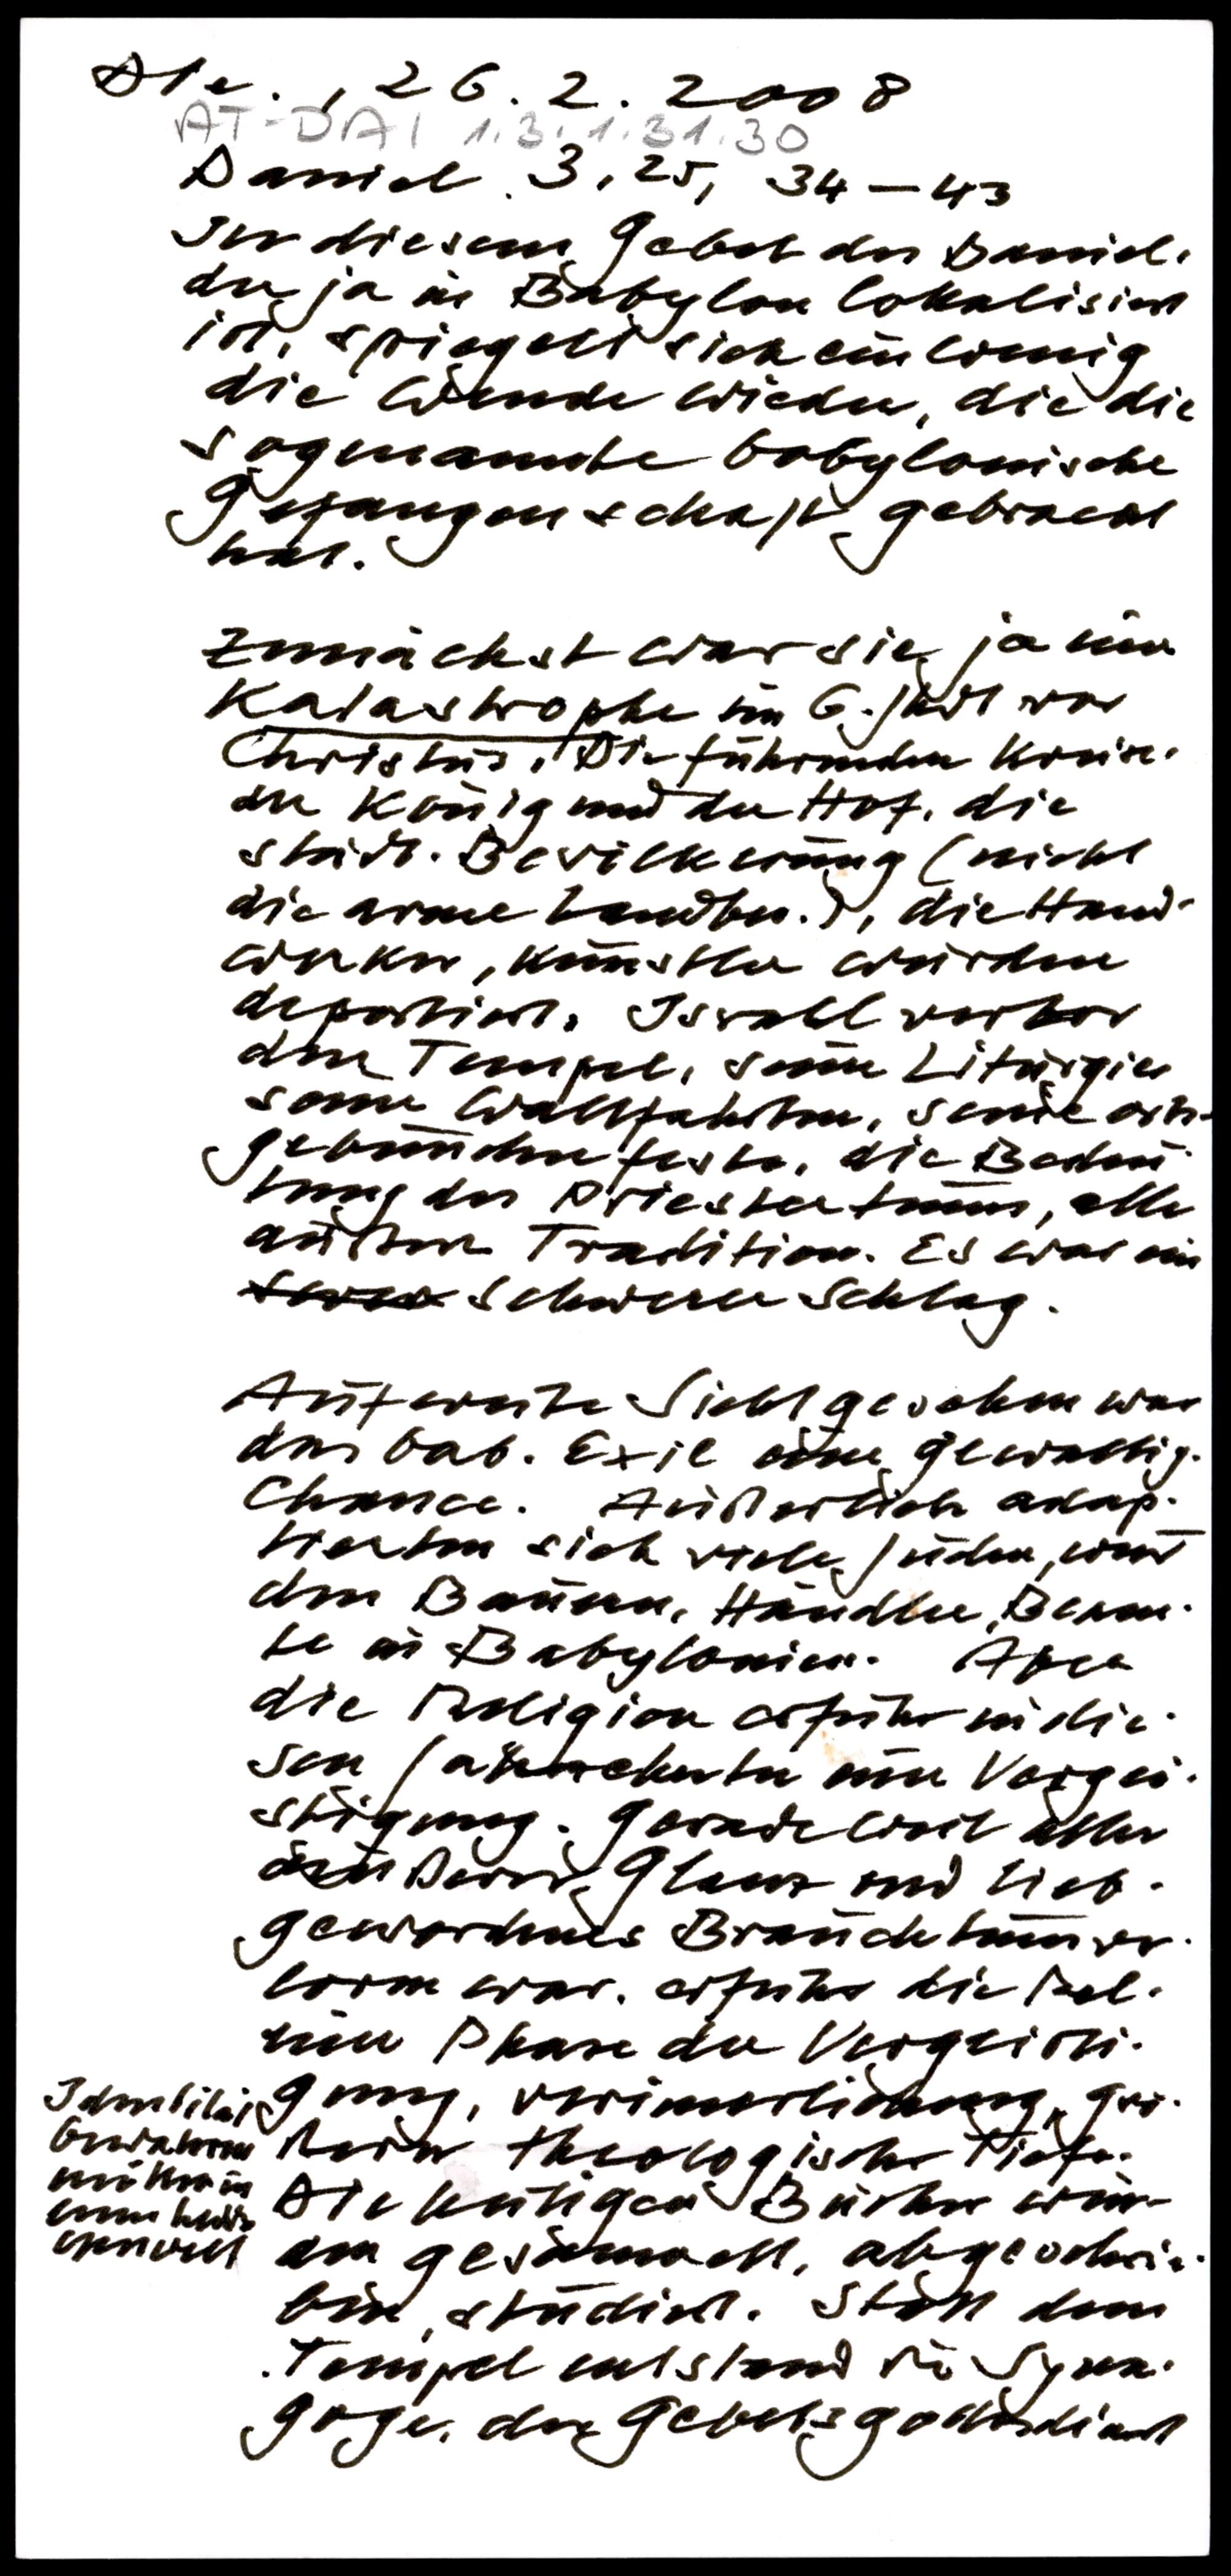 Die., 26.2.2008
AT-DAI 1.3.1.31.30
Daniel 3,25, 34-43
In diesem Gebet des Daniel,
der ja in Babylon lokalisiert
ist, spiegelt sich ein wenig
die Wende wieder, die die
sogenannte babylonische
Gefangenschaft gebracht
hat.
Zunächst war sie ja eine
Katastrophe im 6. Jhdt vor
Christus. Die führenden Kreise,
der König und der Hof, die
städt. Bevölkerung (nicht
die arme Landbev.), die Hand-
werker, Künstler wurden
deportiert. Israel verlor
den Tempel, seine Liturgie
seine Wallfahrten, seine orts-
gebundene Feste, die Bedeu-
tung des Priestertums, alle
äußere Tradition. Es war ein
schwerer Schlag.
Auf weite Sicht gesehen war
das bab. Exil eine gewaltig.
Chance. Äußerlich adap-
tierten sich viele Juden, wur
den Bauern, Händler, Beam-
te in Babylonien. Aber
die Religion erfuhr in die-
sen Jahrzehnten eine Vergei-
stigung. Gerade weil aller
äußerer Glanz und lieb-
gewordenes Brauchtum ver-
loren war, erfuhr die Rel.
eine Phase der Vergeisti-
gung, Verinnerlichung, grö-
ßerer theologischer Tiefe.
Identität
bewahren
mitten in
einer heidn.
Umwelt
Die heiligen Bücher wur-
den gesammelt, abgeschrie-
ben, studiert. Statt dem
Tempel entstand die Syna-
goge, der Gebetsgottesdienst